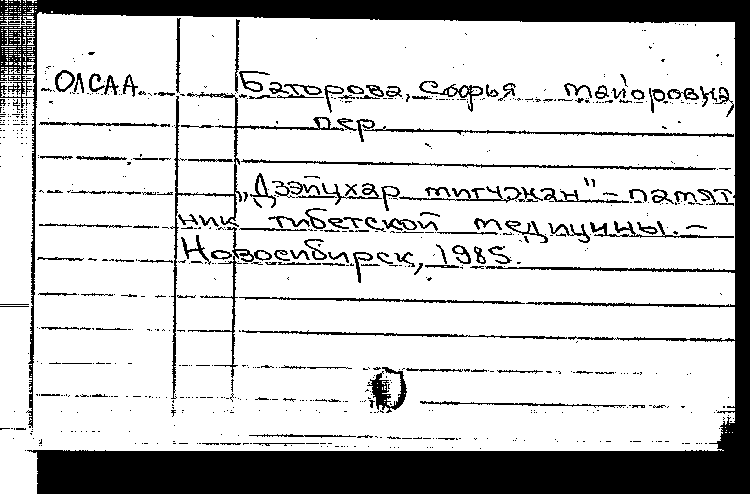 ОЛСАА Баторова, Софья Майоровна,
пер.
„Дзэйцхар мигчжан" – памят
ник тибетской медицины. –
Новосибирск, 1985.